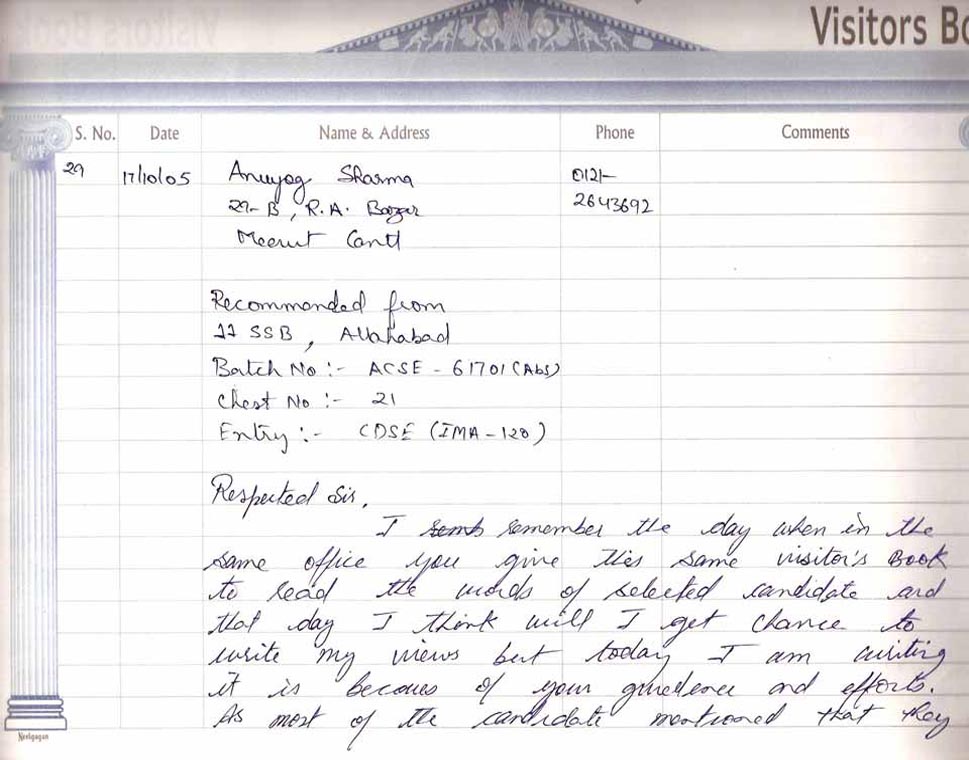 Visitors Bo
S. No. Date Name & Address Phone Comments
29 17/10/05 Anuyog Sharma 0121-
29-B, R.A. Bazar 2643692
Meerut Cantt
Recommended from
11 SSB, Allahabad
Batch No :- ACSE - 61701 (Abs)
Chest No :- 21
Entry :- CDSE (IMA-120)
Respected Sir,
I remember the day when in the
same office you give this same visitor's BOOK
to read the words of selected candidate and
that day I think will I get chance to
write my views but today I am writing
it is becoues of your guidence and efforts.
As most of the candidate mentioned that they
Neelgagan